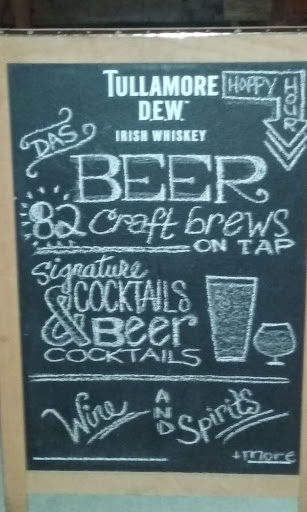 TULLAMORE
D.E.W.™
IRISH WHISKEY
HOPPY
HOUR
DAS
BEER
82 craft brews
ON TAP
Signature
COCKTAILS
& Beer
COCKTAILS
Wine AND Spirits
+more